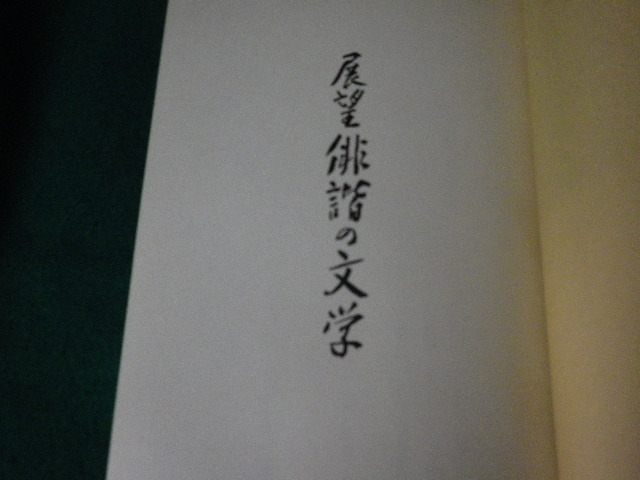 展望俳諧の文学